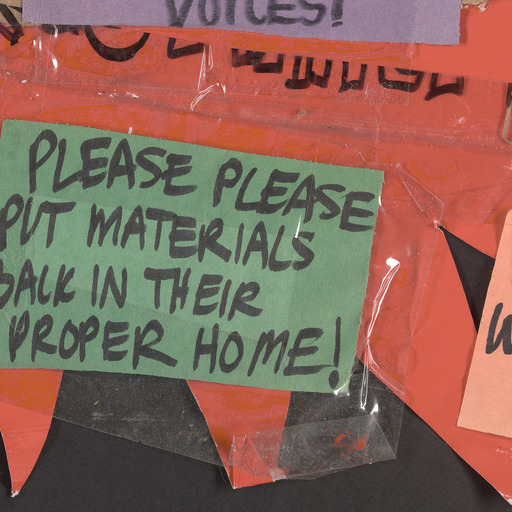 VOICES!
PLEASE PLEASE
PUT MATERIALS
BACK IN THEIR
PROPER HOME!
W